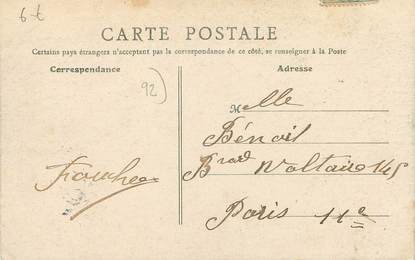 6 t
CARTE POSTALE
Certains pays étrangers n'acceptant pas la correspondance de ce côté, se renseigner à la Poste
Correspondance
Adresse
92)
Melle
Bénoit
Bard Voltaire 145
Paris 11e